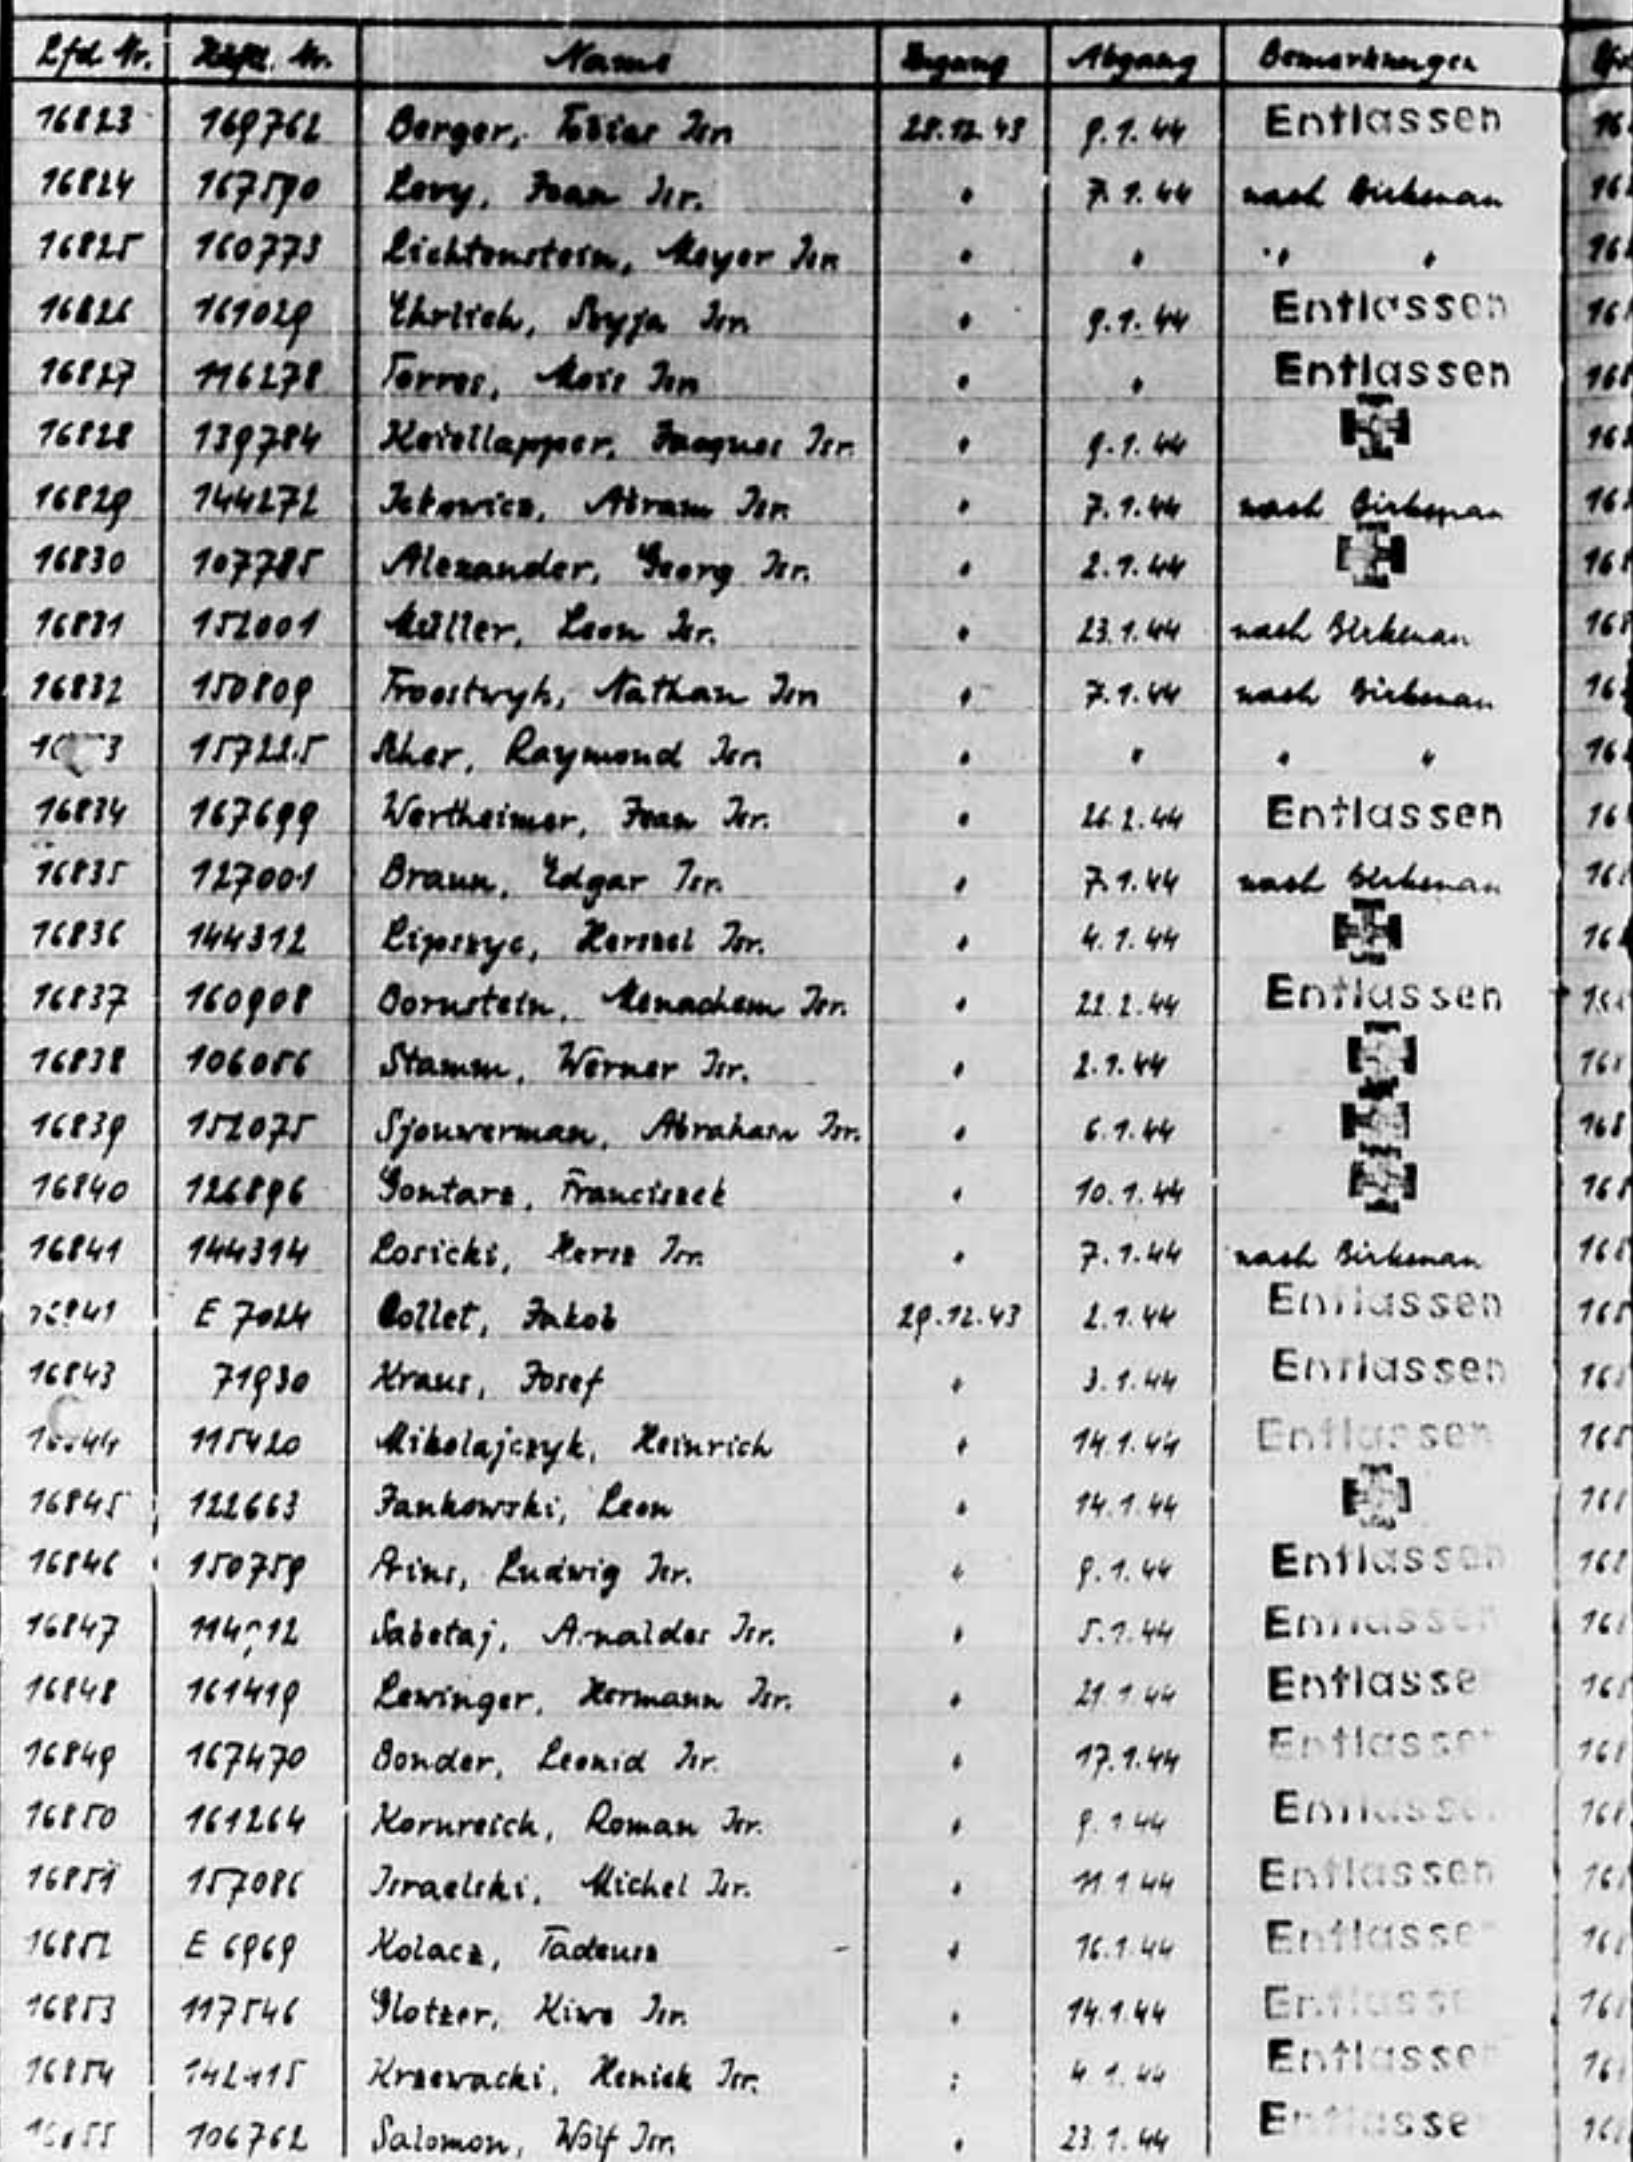 Lfd. Nr. Häftl. Nr. Name Zugang Abgang Bemerkungen
16823 169762 Berger, Tobias Isr. 28.12.43 9.1.44 Entlassen
16824 167590 Levy, Jean Isr. " 7.1.44 nach Birkenau
16825 160773 Lichtenstein, Meyer Isr. " " " "
16826 161029 Ehrlich, Isr. " 9.1.44 Entlassen
16827 116278 Torres, Mois Isr. " " Entlassen
16828 139784 Jacques Isr. " 9.1.44
16829 144272 Ickowicz, Abram Isr. " 7.1.44 nach Birkenau
16830 107785 Alexander, Georg Isr. " 2.1.44
16831 152001 Müller, Leon Isr. " 23.1.44 nach Birkenau
16832 150809 Troostwyk, Nathan Isr. " 7.1.44 nach Birkenau
157225 Raymond Isr. " " " "
16834 167699 Wertheimer, Jean Isr. " 26.2.44 Entlassen
16835 127001 Braun, Edgar Isr. " 7.1.44 nach Birkenau
16836 144312 Lipszyc, Herszel Isr. " 4.1.44
16837 160908 Bornstein, Menachem Isr. " 22.2.44 Entlassen
16838 106056 Stamm, Werner Isr. " 2.1.44
16839 152075 Sjouwerman, Abraham Isr. " 6.1.44
16840 126896 Gontarz, Franciszek " 10.1.44
16841 144314 Losicki, Hersz Isr. " 7.1.44 nach Birkenau
E 7024 Collet, Jakob 29.12.43 2.1.44 Entlassen
16843 71930 Kraus, Josef " 3.1.44 Entlassen
16844 115420 Mikolajczyk, Heinrich " 14.1.44 Entlassen
16845 122663 Jankowski, Leon " 14.1.44
16846 150759 Prins, Ludwig Isr. " 9.1.44 Entlassen
16847 Sabetaj, Arnaldes Isr. " 5.1.44 Entlassen
16848 161419 Lewinger, Hermann Isr. " 21.1.44 Entlassen
16849 167470 Bonder, Leonid Isr. " 17.1.44 Entlassen
16850 161264 Kornreich, Roman Isr. " 9.1.44 Entlassen
16851 157086 Israelski, Michel Isr. " 11.1.44 Entlassen
16852 E 6969 Kolacz, Tadeusz " 16.1.44 Entlassen
16853 117546 Glotzer, Kiwa Isr. " 14.1.44 Entlassen
16854 Krzewacki, Heniek Isr. " 4.1.44 Entlassen
16855 106762 Salomon, Wolf Isr. " 23.1.44 Entlassen